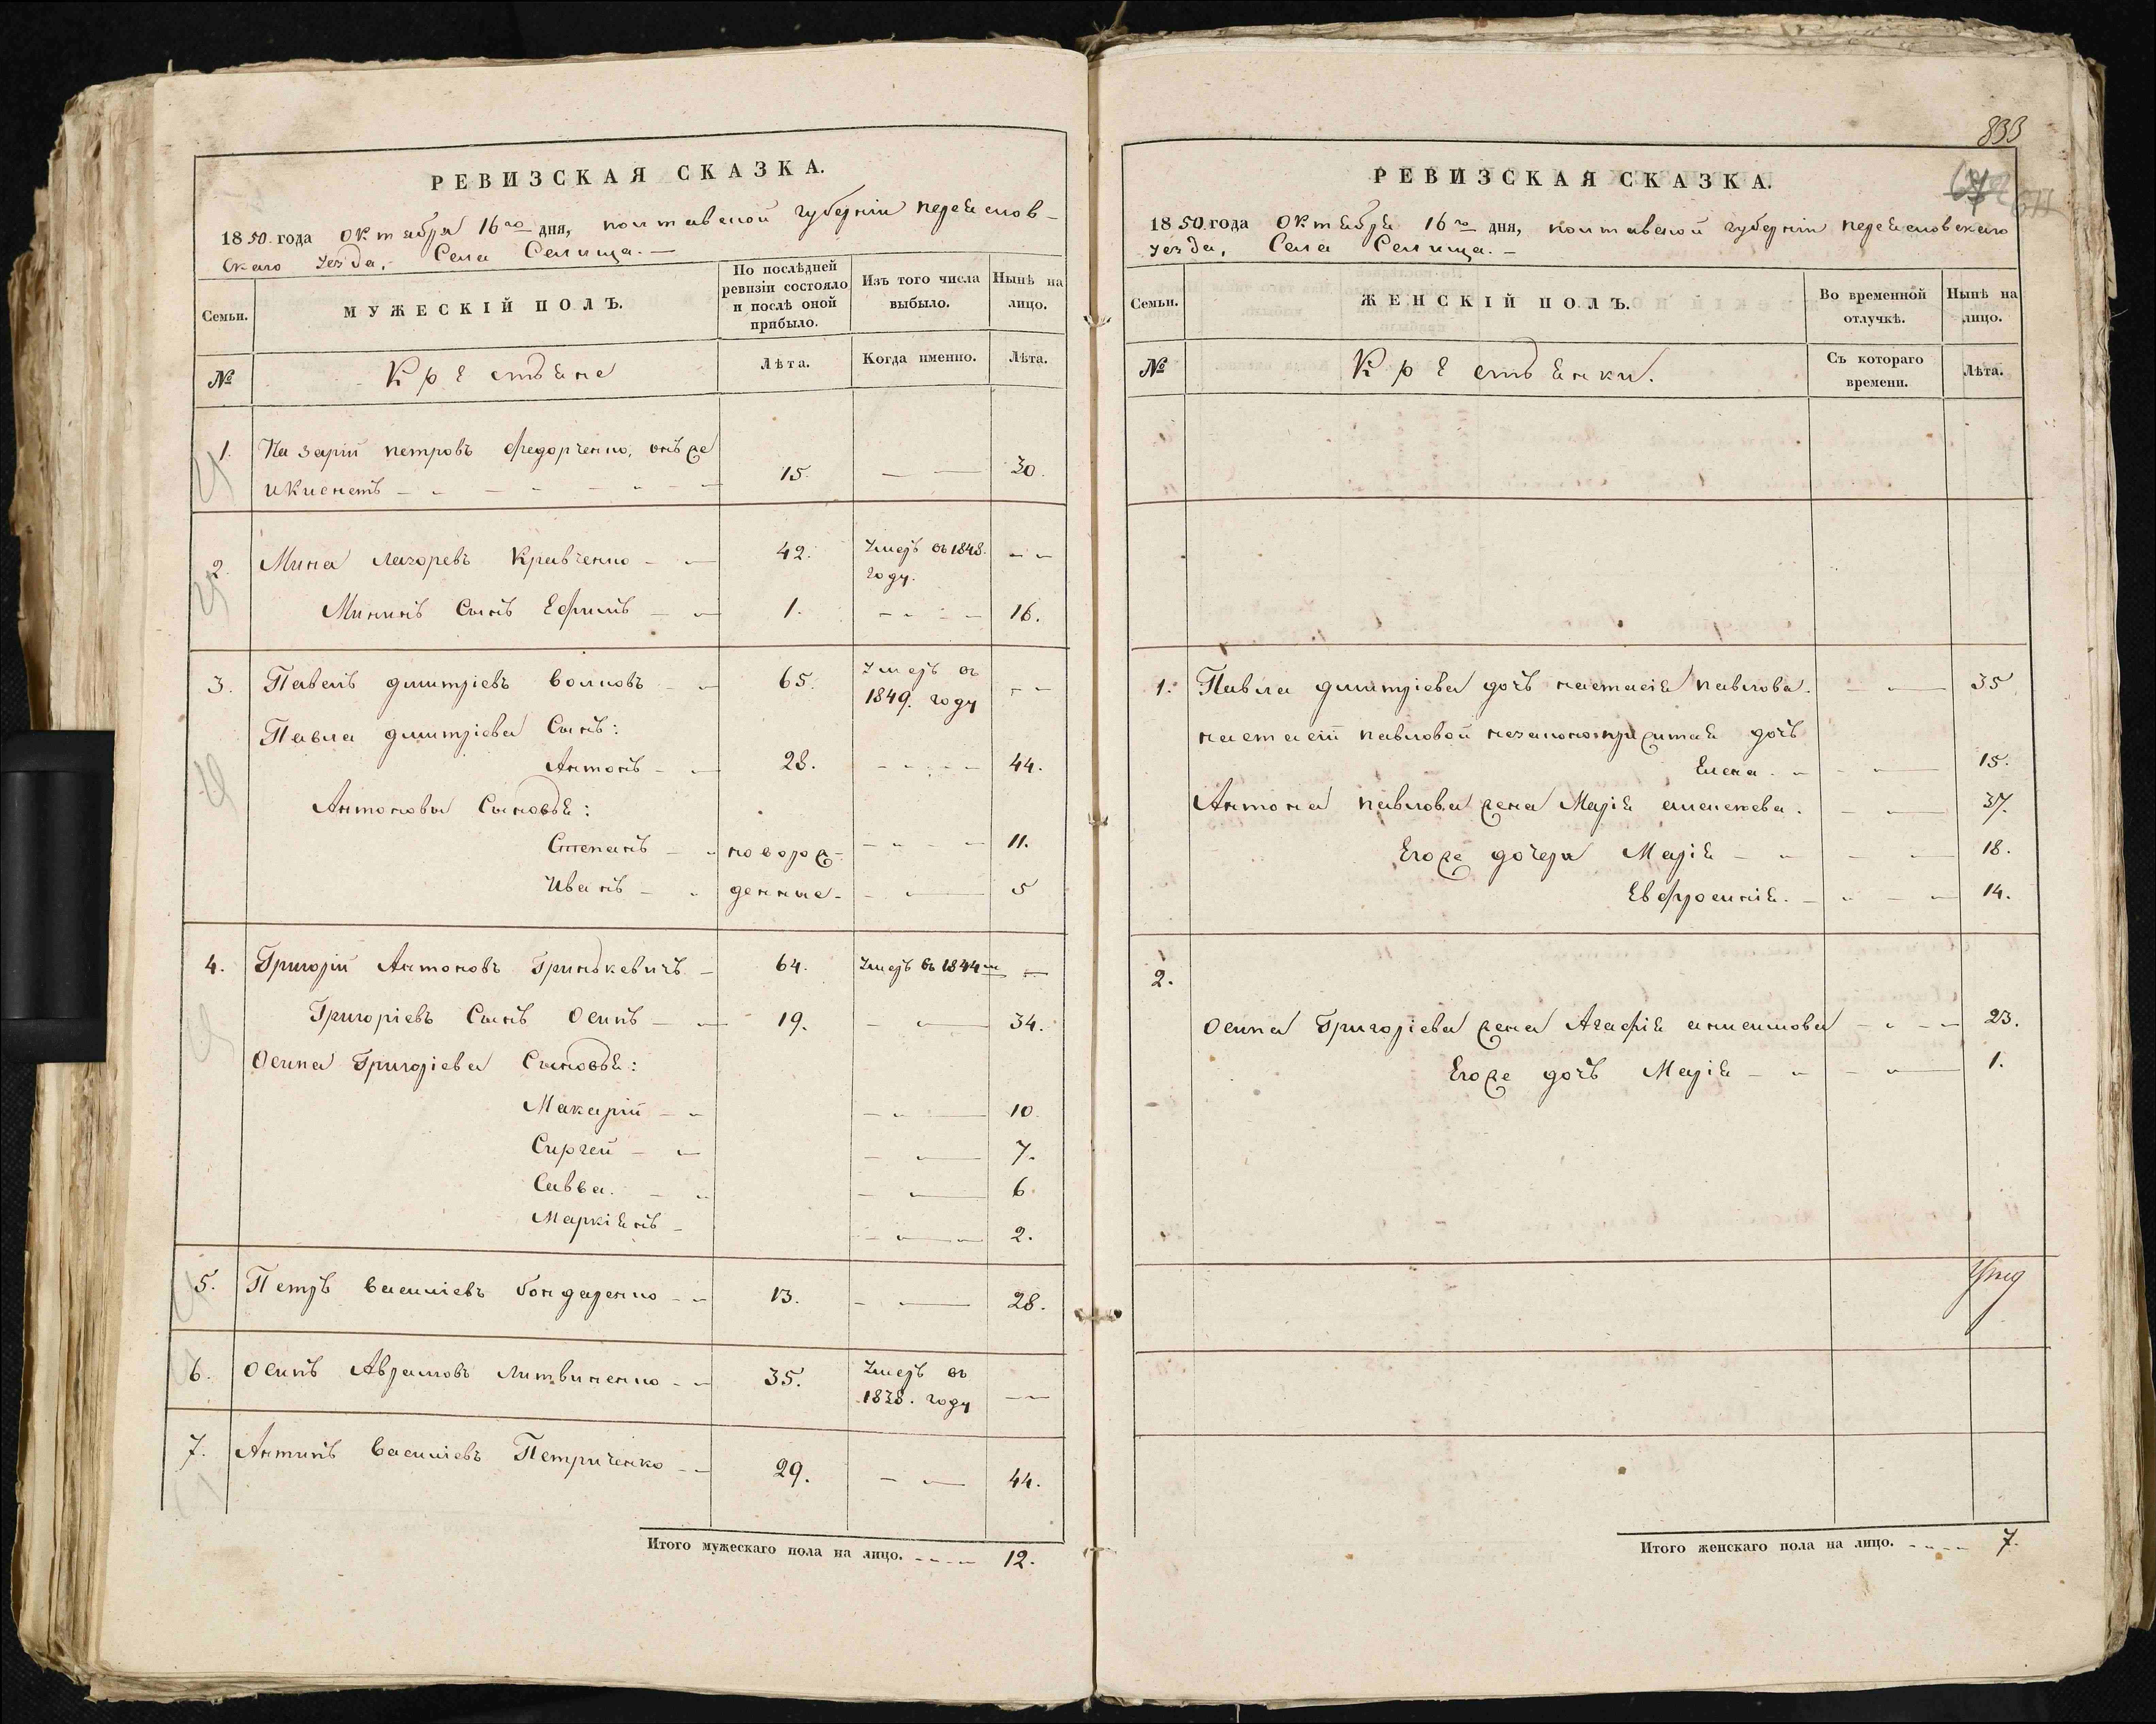 РЕВИЗСКАЯ СКАЗКА.
1850. года октября 16го дня, полтавской губерніи переяслов-
скаго уезда, Села Селища.—
Семьи.
МУЖЕСКІЙ ПОЛЪ.
По послѣдней ревизіи состояло и послѣ оной прибыло.
Изъ того числа выбыло.
Нынѣ на лицо.
№
Крестьяне
Лѣта.
Когда именно.
Лѣта.
1. Назарій петровъ Федорченко, онъ же
15. — — 30.
2. Мина лазоревъ Кравченко — 42. Умеръ въ 1848. году. — —
Мининъ Сынъ Ефимъ — 1. — — 16.
3. Павелъ дмитріевъ волковъ — 65. Умеръ въ 1849. году — —
Павла дмитріева Сынъ:
Антонъ — 28. — — 44.
Антоновы Сыновья:
Степанъ — новорож- — — 11.
Иванъ — денные — — 5
4. Григорій Антоновъ Гринькевичъ — 64. Умеръ въ 1844м —
Григоріевъ Сынъ Осипъ — 19. — — 34.
Осипа Григоріева Сыновья:
Макарій — — 10.
Сиргей — — 7.
Савва. — — 6.
Маркіянъ — — 2.
5. Петръ василіевъ бондаренко — 13. — — 28.
6. Осипъ Аврамовъ литвиненко — 35. Умеръ въ 1838. году — —
7. Антипъ василіевъ Петриченко — 29. — — 44.
Итого мужескаго пола на лицо. — — 12.
833
РЕВИЗСКАЯ СКАЗКА.
1850 года октября 16го дня, полтавской губерніи переясловскаго
уезда, Села Селища.—
Семьи.
ЖЕНСКІЙ ПОЛЪ.
Во временной отлучкѣ.
Нынѣ на лицо.
№
Крестьянки.
Съ котораго времени.
Лѣта.
1. Павла дмитріева дочь настасія павлова. — — 35
настасіи павловой незаконноприжитая дочь
Елена. — — 15.
Антона павлова жена Марія алексеева. — — 37.
Егоже дочери Марія — — 18.
Евфросинія. — — 14.
2.
Осипа Григоріева жена Агафія анисимова — — 23.
Егоже дочь Марія — — 1.
Итого женскаго пола на лицо. — — 7.